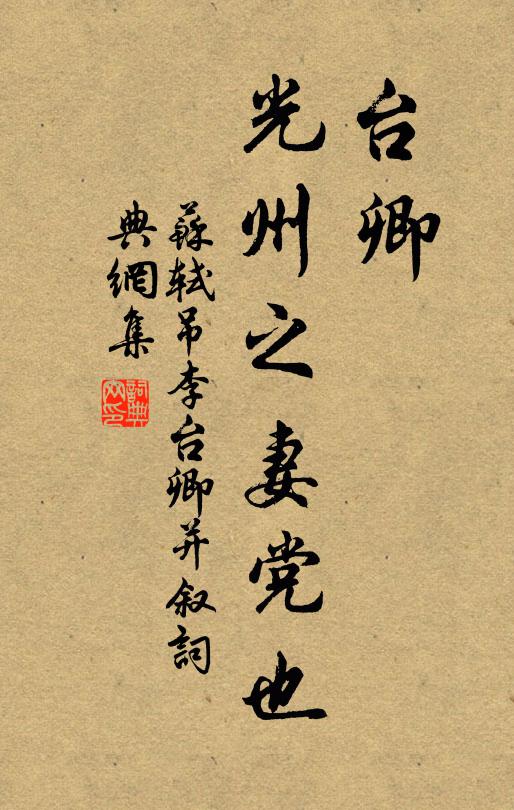 台卿
光州之妻党也
蘇軾吊李台卿并叙詞
典網集
詞典網印